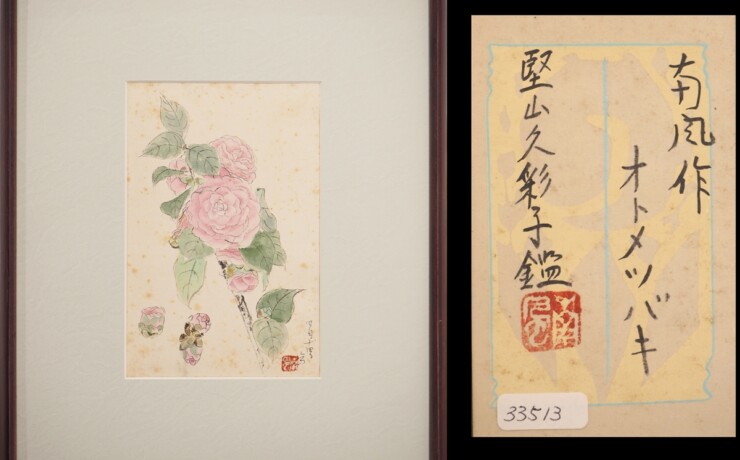 南風作
オトメツバキ
堅山久彩子鑑
33513